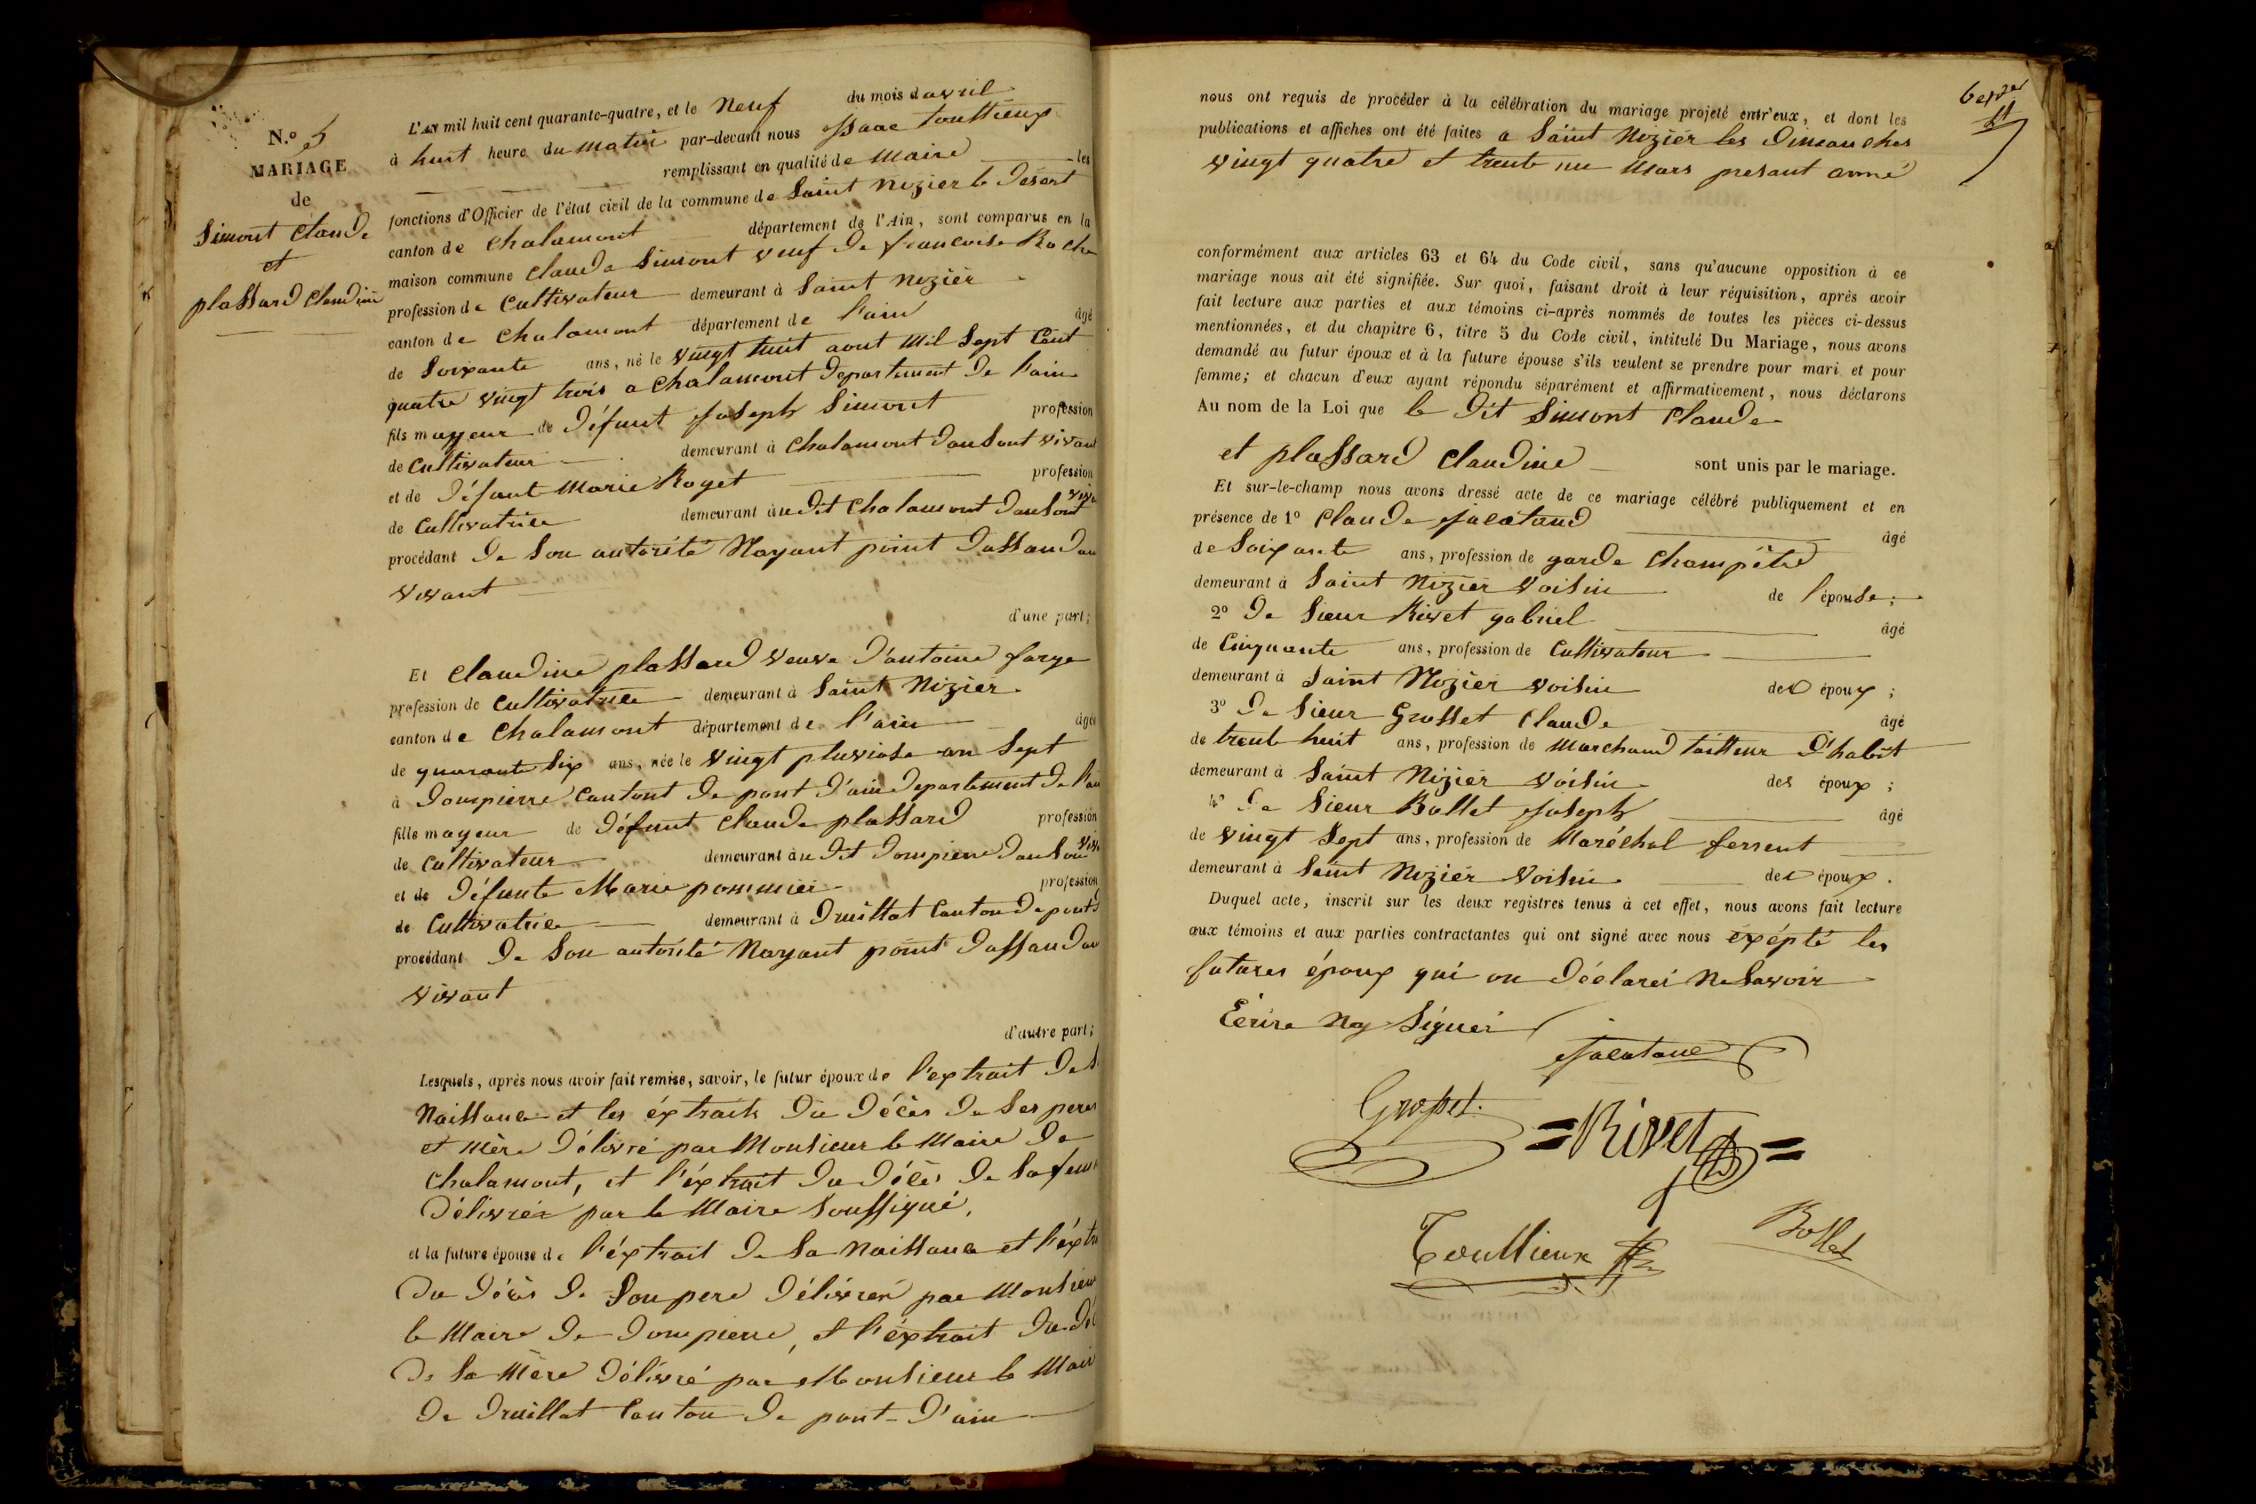 N.o 5
MARIAGE
de
Simont Claude
et
plassard Claudine
L'An mil huit cent quarante-quatre, et le neuf du mois d avril
à huit heure du matin par-devant nous Isaac Toullieux
remplissant en qualité de Maire les
fonctions d'Officier de l'état civil de la commune de Saint Nizier le Desert
canton de Chalamont département de l'Ain, sont comparus en la
maison commune Claude Simont veuf de francoise Roche
profession de Cultivateur demeurant à Saint Nizier
canton de Chalamont département de l'ain âgé
de Soixante ans, né le vingt huit aout Mil Sept Cent
quatre vingt trois a Chalamont departement de l'ain
fils mayeur de défunt Joseph Simont profession
de Cultivateur demeurant à Chalamont dan Sont vivant
et de défunte Marie Royet profession
de Cultivatrice demeurant à u dit Chalamont dan Sont viva
procédant de Son autorité Nayant point dassandan
vivant
d'une part;
Et Claudine plassard veuve d'antoine farge
profession de Cultivatrice demeurant à Saint Nizier
canton de Chalamont département de l'ain âgée
de quarante Six ans, née le vingt pluviose an Sept
à dompierre Cantont de pont d'ain departement de l'ain
fille mayeur de défunt Claude plassard profession
de Cultivateur demeurant à u dit dompierre dan Son viva
et de défunte Marie pommier profession
de Cultivatrice demeurant à druillat Canton de pont d
procédant de Son autorité Nayant point dassandan
vivant
d'autre part;
Lesquels, après nous avoir fait remise, savoir, le futur époux de l'extrait de S
Naissance et les éxtraits du décès de Ses peres
et mère délivré par Monsieur le Maire de
Chalamont, et l'éxtrait du décès de Sa fem
délivrér par le Maire Soussigné,
et la future épouse de l'éxtrait de Sa Naissance et l'éxtr
du décès de Son pere délivrér par Monsieur
le Maire de dompierre, et l'éxtrait du déc
de Sa mère délivré par Monsieur le Mair
de druillat Canton de pont-d'ain
nous ont requis de procéder à la célébration du mariage projeté entr'eux, et dont les
publications et affiches ont été faites a Saint Nizier les dimanches
vingt quatre et trente un Mars presant anné
conformément aux articles 63 et 64 du Code civil, sans qu'aucune opposition à ce
mariage nous ait été signifiée. Sur quoi, faisant droit à leur réquisition, après avoir
fait lecture aux parties et aux témoins ci-après nommés de toutes les pièces ci-dessus
mentionnées, et du chapitre 6, titre 5 du Code civil, intitulé Du Mariage, nous avons
demandé au futur époux et à la future épouse s'ils veulent se prendre pour mari et pour
femme; et chacun d'eux ayant répondu séparément et affirmativement, nous déclarons
Au nom de la Loi que le dit Simont Claude
et plassard Claudine sont unis par le mariage.
Et sur-le-champ nous avons dressé acte de ce mariage célébré publiquement et en
présence de 1o Claude Jacatand âgé
de Soixante ans, profession de garde Champêtre
demeurant à Saint Nizier voisin de l'épouse;
2o de Sieur Rivet gabriel âgé
de Cinquante ans, profession de Cultivateur
demeurant à Saint Nizier voisin des époux;
3o de Sieur Grosset Claude âgé
de trente huit ans, profession de Marchand tailleur d'habit
demeurant à Saint Nizier voisin des époux;
4o de Sieur Bollet Joseph âgé
de vingt Sept ans, profession de Maréchal ferrent
demeurant à Saint Nizier voisin des époux.
Duquel acte, inscrit sur les deux registres tenus à cet effet, nous avons fait lecture
aux témoins et aux parties contractantes qui ont signé avec nous éxépté les
futures époux qui on déclarer Ne Savoir
Ecrire Ny Signer
Jacatand
Grosset
=Rivet=
Toullieux
Bollet